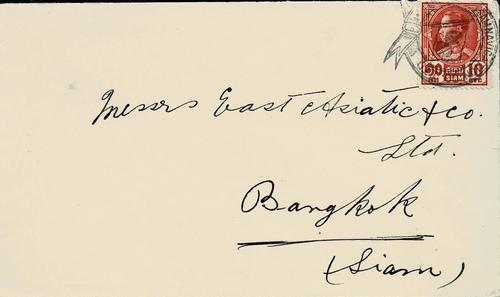 10 10
SIAM
Messrs East Asiatic & Co.
Ltd.
Bangkok
(Siam)